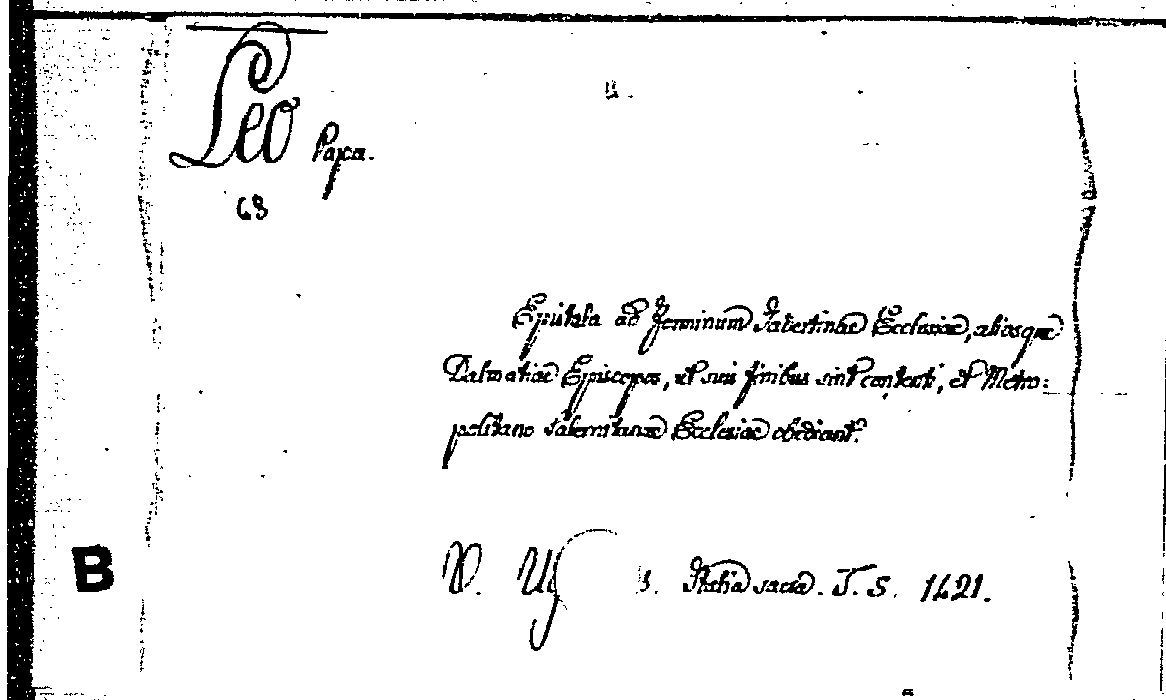 Leo Papa.
68
Epistola ad Forminum Jadertinae Ecclesiae, aliosque
Dalmatiae Episcopos, ut suis finibus sint contenti, et Metro:
politano Salernitanae Ecclesiae obediant.
V. Ug
Italia sacra. T. S. 1421.
B